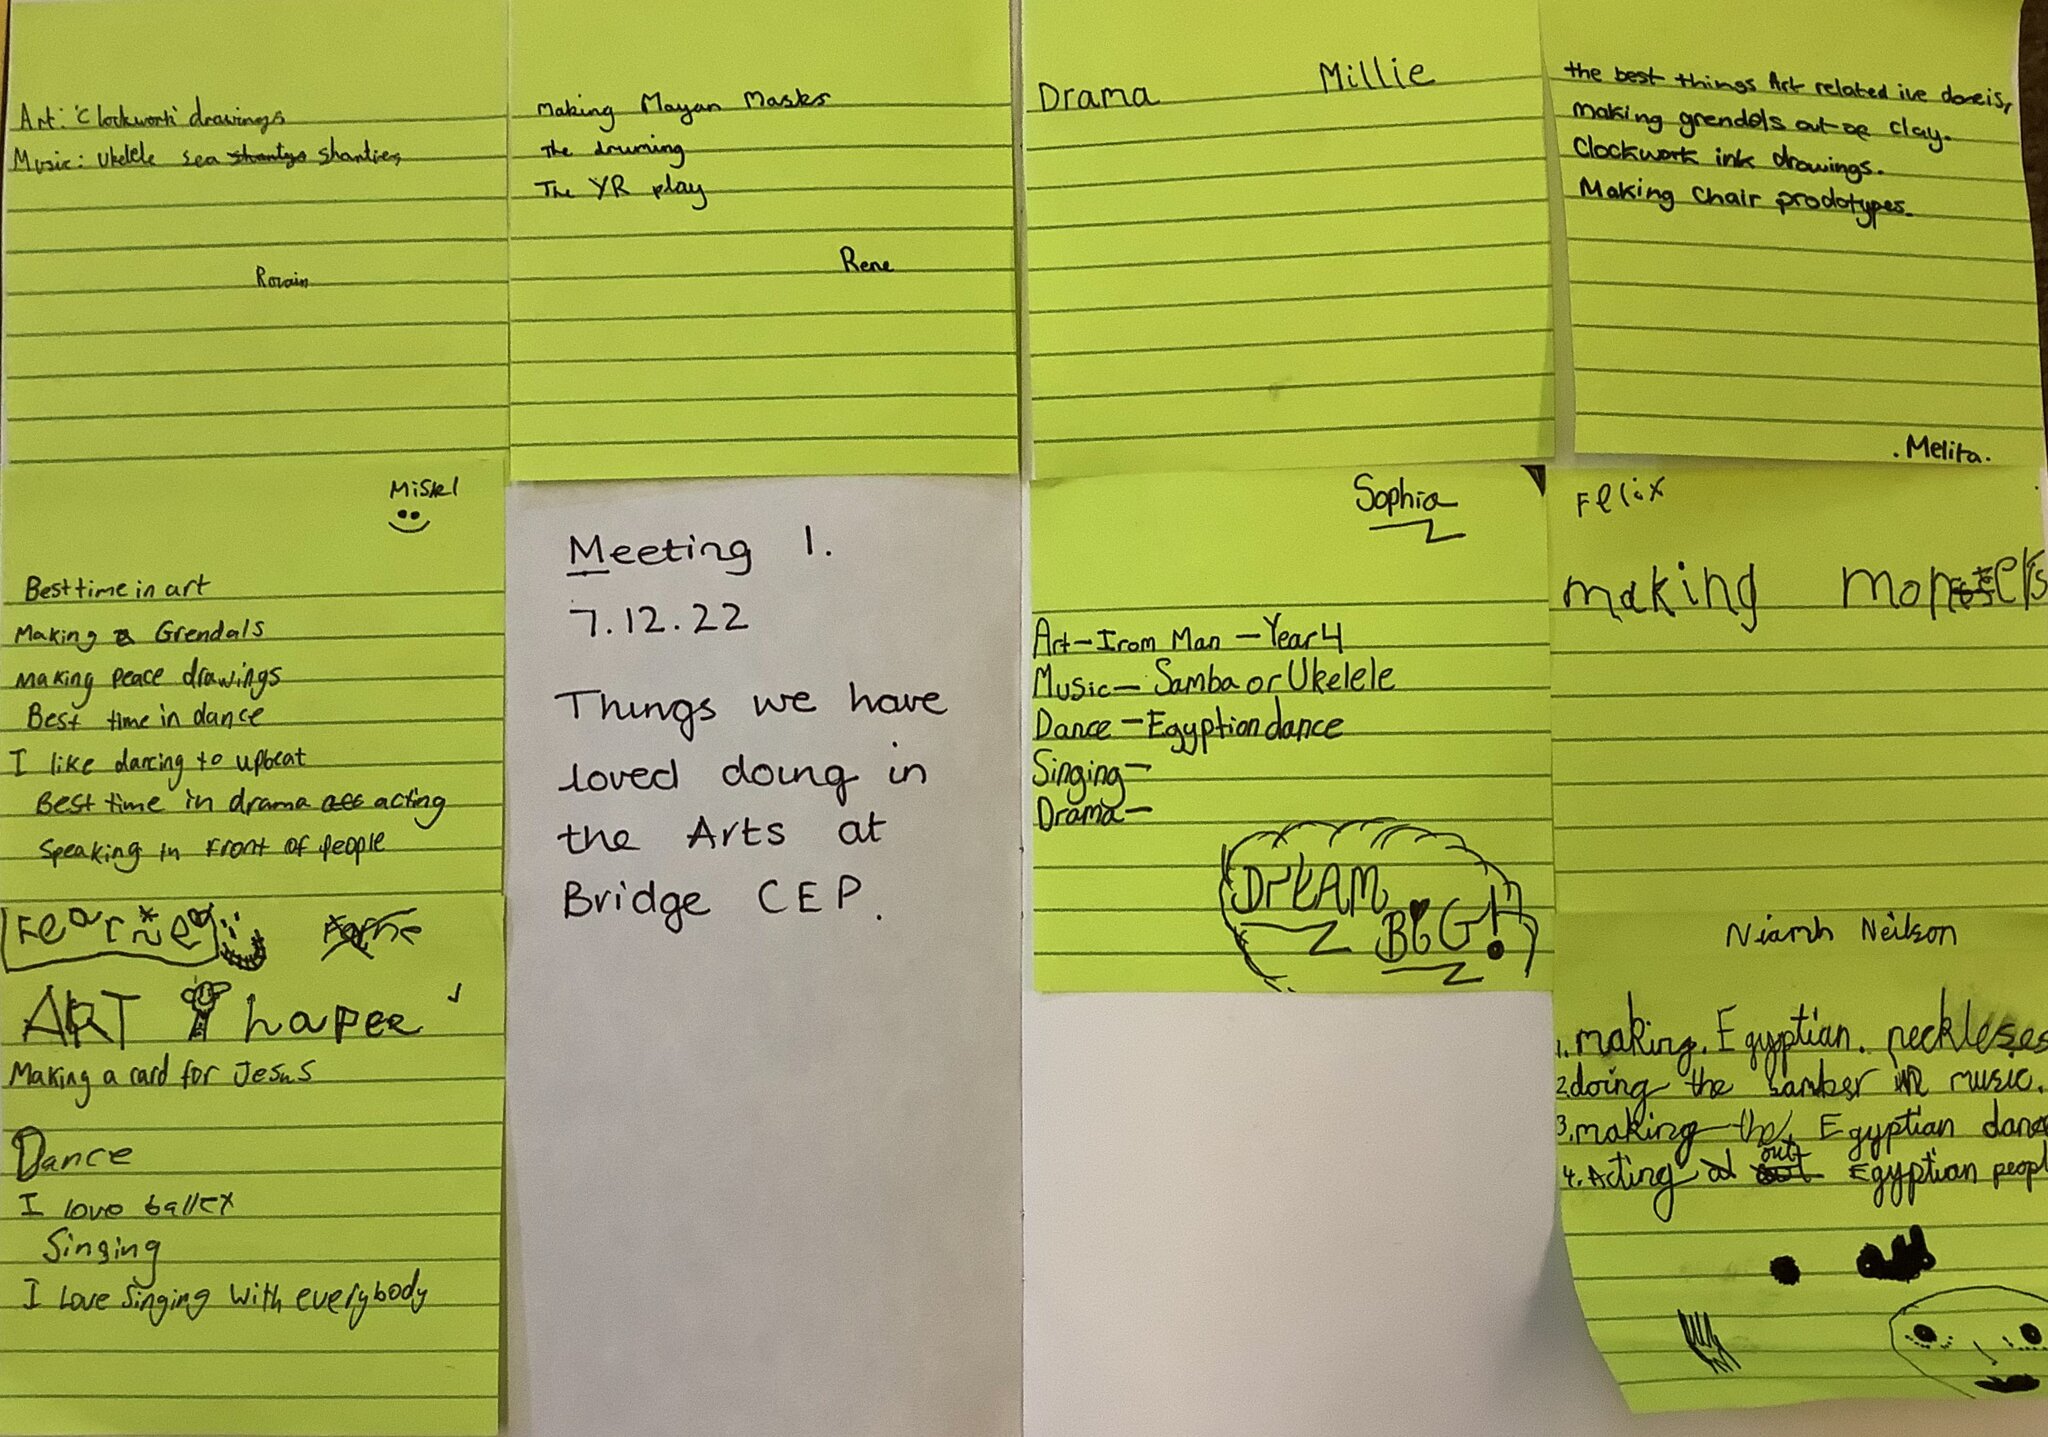 Art: 'Clockwork' drawings
Music: Ukelele sea shantys shanties
Making Mayan Masks
The druming
The YR play
Rene
Drama Millie
the best things Art related ive done is,
making grendels out of clay.
Clockwork ink drawings.
Making Chair prodotypes.
.Melita.
Miskel
Best time in art
Making Grendals
Making peace drawings
Best time in dance
I like dancing to upbeat
Best time in drama acting
Speaking in front of people
Meeting 1.
7.12.22
Things we have
loved doing in
the Arts at
Bridge CEP.
Sophia
Art - Iron Man - Year 4
Music - Samba or Ukelele
Dance - Egyption dance
Singing -
Drama -
DREAM
BIG!
Felix
making monsters
ART
Making a card for Jesus
Dance
I love ballet
Singing
I love Singing With everybody
Niamh Neilson
1. making. Egyptian. neckleses
2. doing the samber in music.
3. making the Egyptian dance
4. Acting out Egyptian peopl